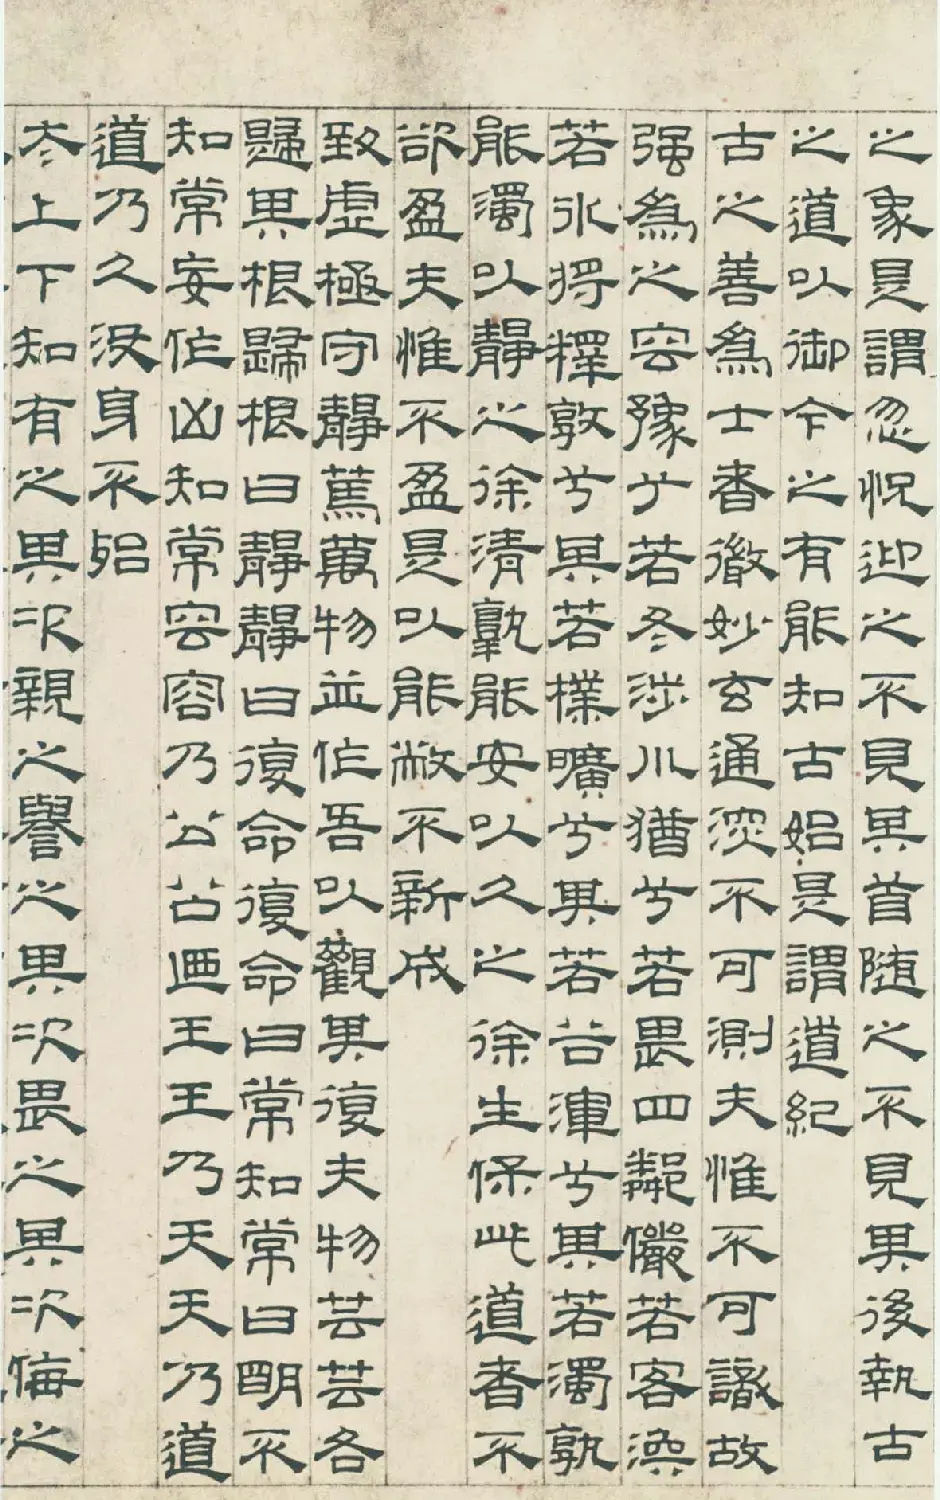 之象是謂忽怳迎之不見其首随之不見其後執古
之道以御今之有能知古始是謂道紀
古之善為士者微妙玄通深不可測夫惟不可識故
强為之容豫兮若冬涉川猶兮若畏四鄰儼若客渙
若冰将釋敦兮其若樸曠兮其若谷渾兮其若濁孰
能濁以靜之徐清孰能安以久之徐生保此道者不
欲盈夫惟不盈是以能敝不新成
致虛極守靜篤萬物並作吾以觀其復夫物芸芸各
歸其根歸根曰靜靜曰復命復命曰常知常曰明不
知常妄作凶知常容容乃公公廼王王乃天天乃道
道乃久没身不殆
太上下知有之其次親之譽之其次畏之其次侮之